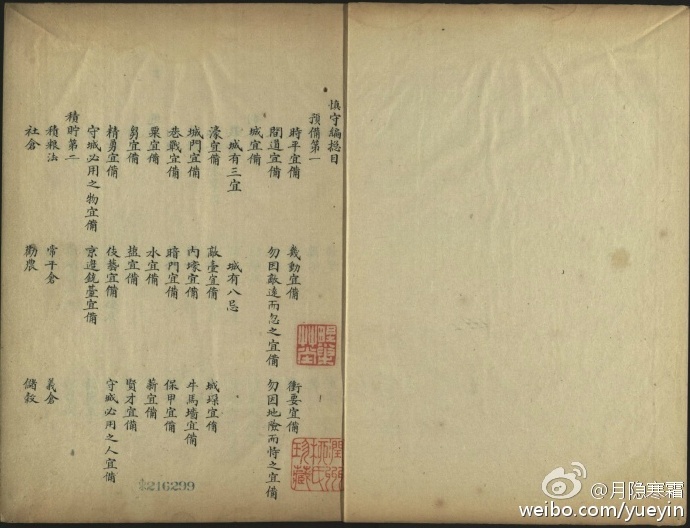 慎守編總目
預備第一
時平宜備 幾動宜備 衝要宜備
間道宜備 勿因敵遠而忽之宜備 勿因地險而恃之宜備
城宜備
城有三宜 城有八忌
濠宜備 敵臺宜備 城堞宜備
城門宜備 內壕宜備 牛馬墻宜備
巷戰宜備 暗門宜備 保甲宜備
粟宜備 水宜備 薪宜備
芻宜備 鹽宜備 賢才宜備
精勇宜備 伎藝宜備 守城必用之人宜備
守城必用之物宜備 京邊銃臺宜備
積貯第二
積粮法 常平倉 義倉
社倉 勸農 儲穀
216299
@月隐寒霜
weibo.com/yueyin